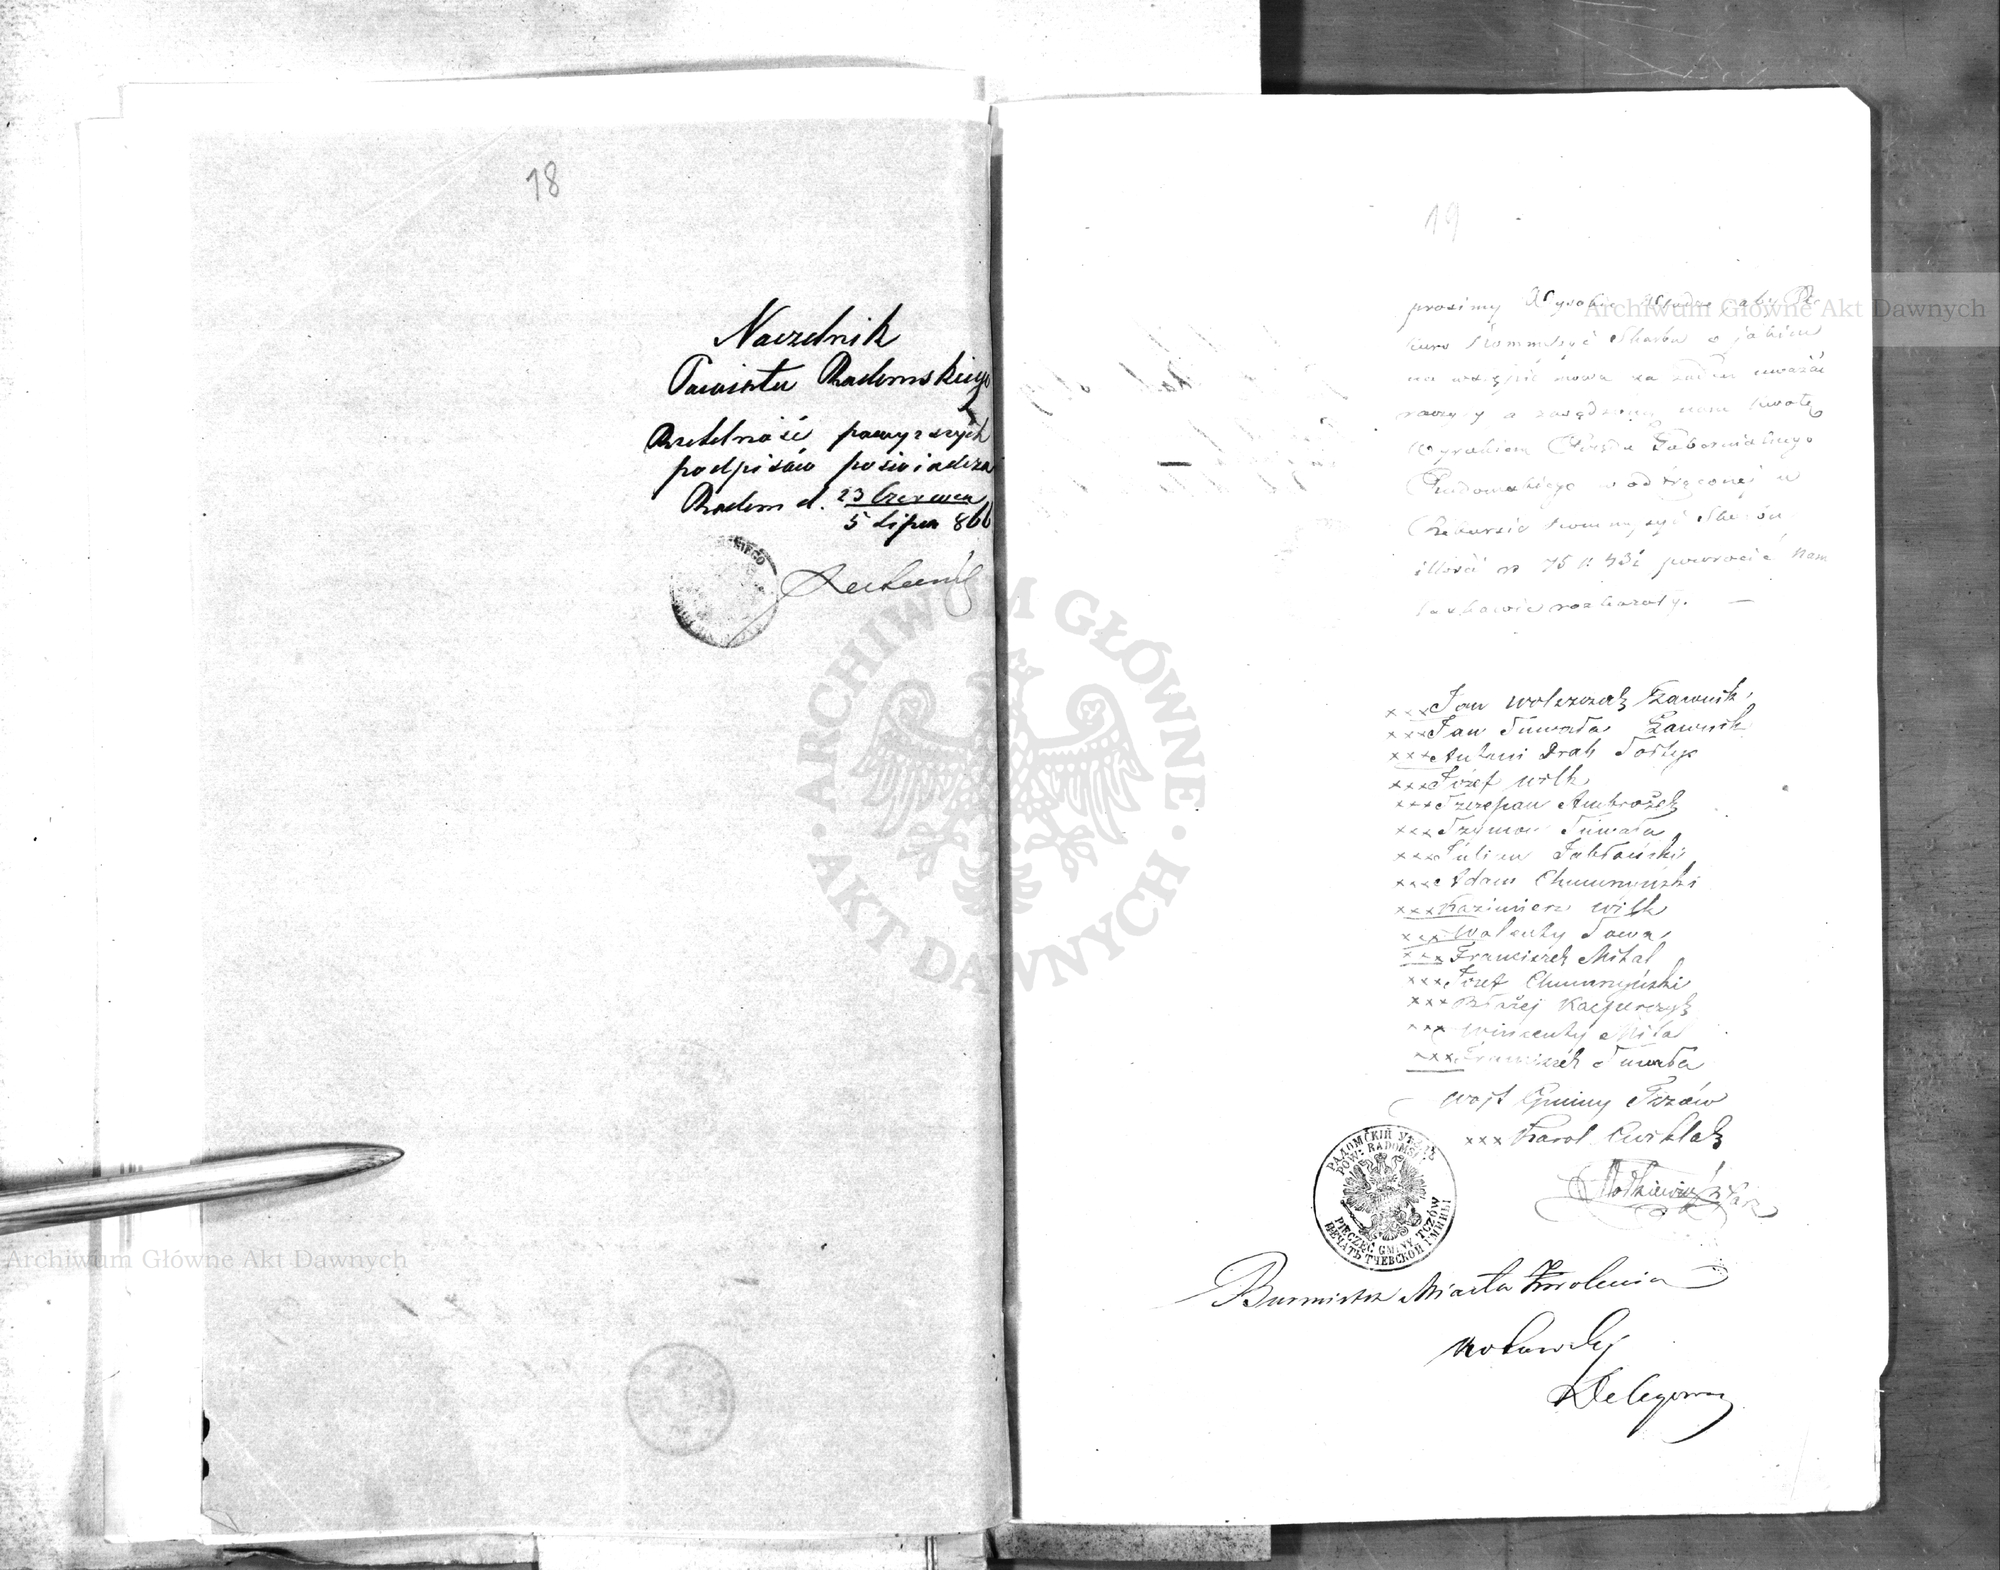 18
Naczelnik
Powiatu Radomskiego
Rzetelność powyższych
podpisów poświadcza
Radom d. 23 Czerwca
5 Lipca 866
19
prosimy Wysokie Władze aby
Kommissyi Skarbu o jakim
na wstępie mowa za uważać
raczyły a zasądzoną nam kwotę
Wyrokiem Rządu Gubernialnego
Radomskiego w
Kommissyi Skarbu
ilości rs 75 k 43½ powrócić nam
łaskawie rozkazały. —
xxx Jan Wolszczak Ławnik
xxx Jan Suwała Ławnik
xxx Antoni Drab Sołtys
xxx Józef Wilk
xxx Szczepan Ambrożek
xxx Szymon Suwała
xxx Julian Jabłoński
xxx Adam Chmurzyński
xxx Kazimierz Wilk
xxx Walenty Sowa
xxx Franciszek Mital
xxx Józef Chmurzyński
xxx Błażej Kacperczyk
xxx Wincenty
xxx Franciszek Suwała
Wójt Gminy Tczów
xxx Karol Ćwiklak
РАДОМСКІЙ УѢЗДЪ
POW: RADOMSKI
PIECZĘĆ GMINY TCZÓW
ПЕЧАТЬ ТЧЕВСКОЙ ГМИНЫ
Burmistrz Miasta Zwolenia
Delegowany
Archiwum Główne Akt Dawnych
ARCHIWUM GŁÓWNE
AKT DAWNYCH
Archiwum Główne Akt Dawnych